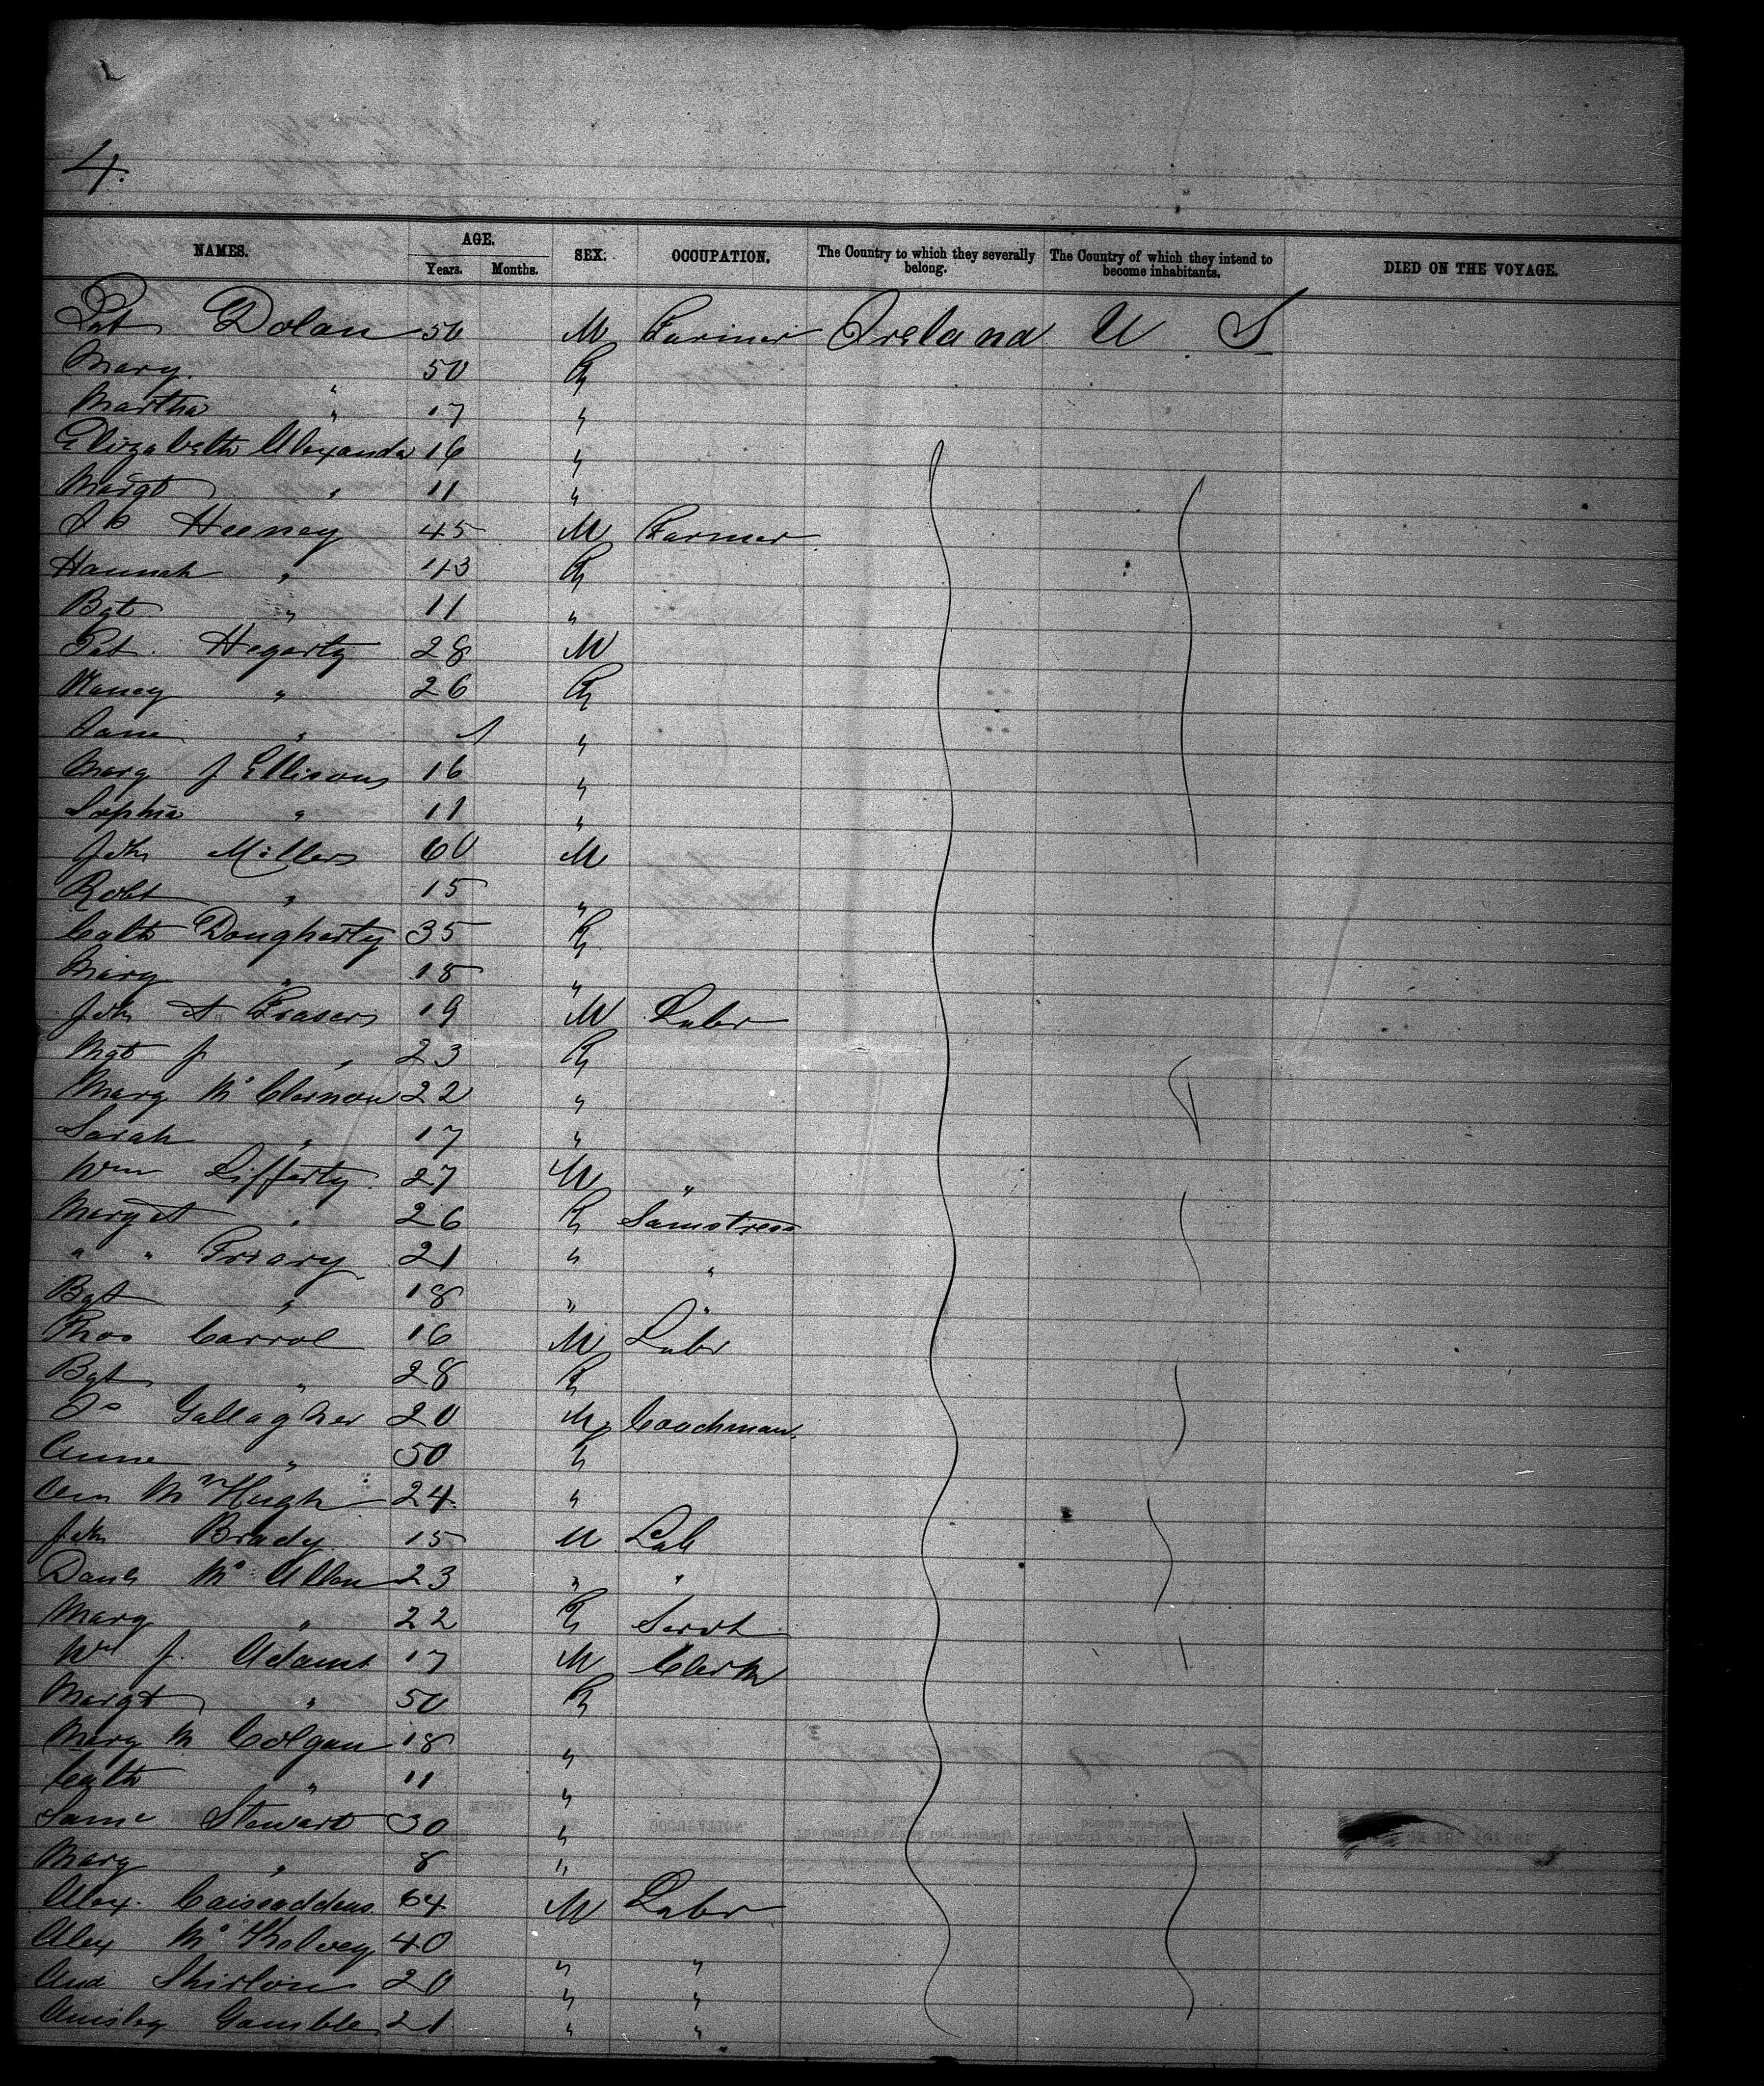 4.
NAMES. AGE. SEX. OCCUPATION. The Country to which they severally belong. The Country of which they intend to become inhabitants. DIED ON THE VOYAGE.
Years. Months.
Pat Dolan 50 M Farmer Ireland U S
Mary " 50 F
Martha " 17 "
Elizabeth Alexander 16 "
Margt " 11 "
Heeney 45 M Farmer
Hannah " 43 F
Bgt " 11 "
Pat Hegarty 28 M
Nancy " 26 F
Jane " 1 "
Mary J Ellison 16 "
Sophia " 11 "
John Miller 60 M
Robt " 15 "
Cath Dougherty 35 F
Mary " 18 "
John A Fraser 19 M Labr
Mgt J " 23 F
Mary Mc Clernon 22 "
Sarah " 17 "
Wm Lifferty 27 M "
Margt " 26 F Samstress
" " Friary 21 " "
Bgt " 18 " "
Thos Carrol 16 M Labr
Bgt " 28 F
Js Gallagher 20 M Coachman
Anne " 50 F
McHugh 24 "
John Brady 15 M Lab
Danl Mc Allen 23 " "
Mary " 22 F Servt
Wm J. Adams 17 M Clerk
Margt " 50 F
Mary Mc Colgan 18 "
Cath " 11 "
Stewart 30 "
Mary " 8 "
Alex. 64 M Labr
Alex Mc 40 " "
And 20 " "
Ainsley Gamble 21 " "